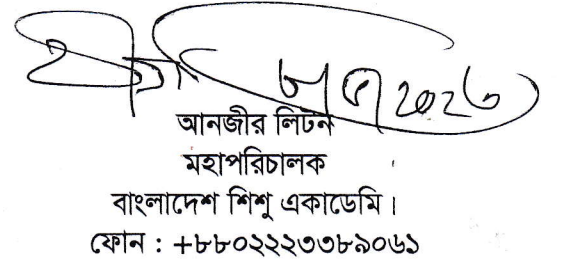 আনজীর লিটন
মহাপরিচালক
বাংলাদেশ শিশু একাডেমি।
ফোন : +৮৮০২২২৩৩৮৯০৬১